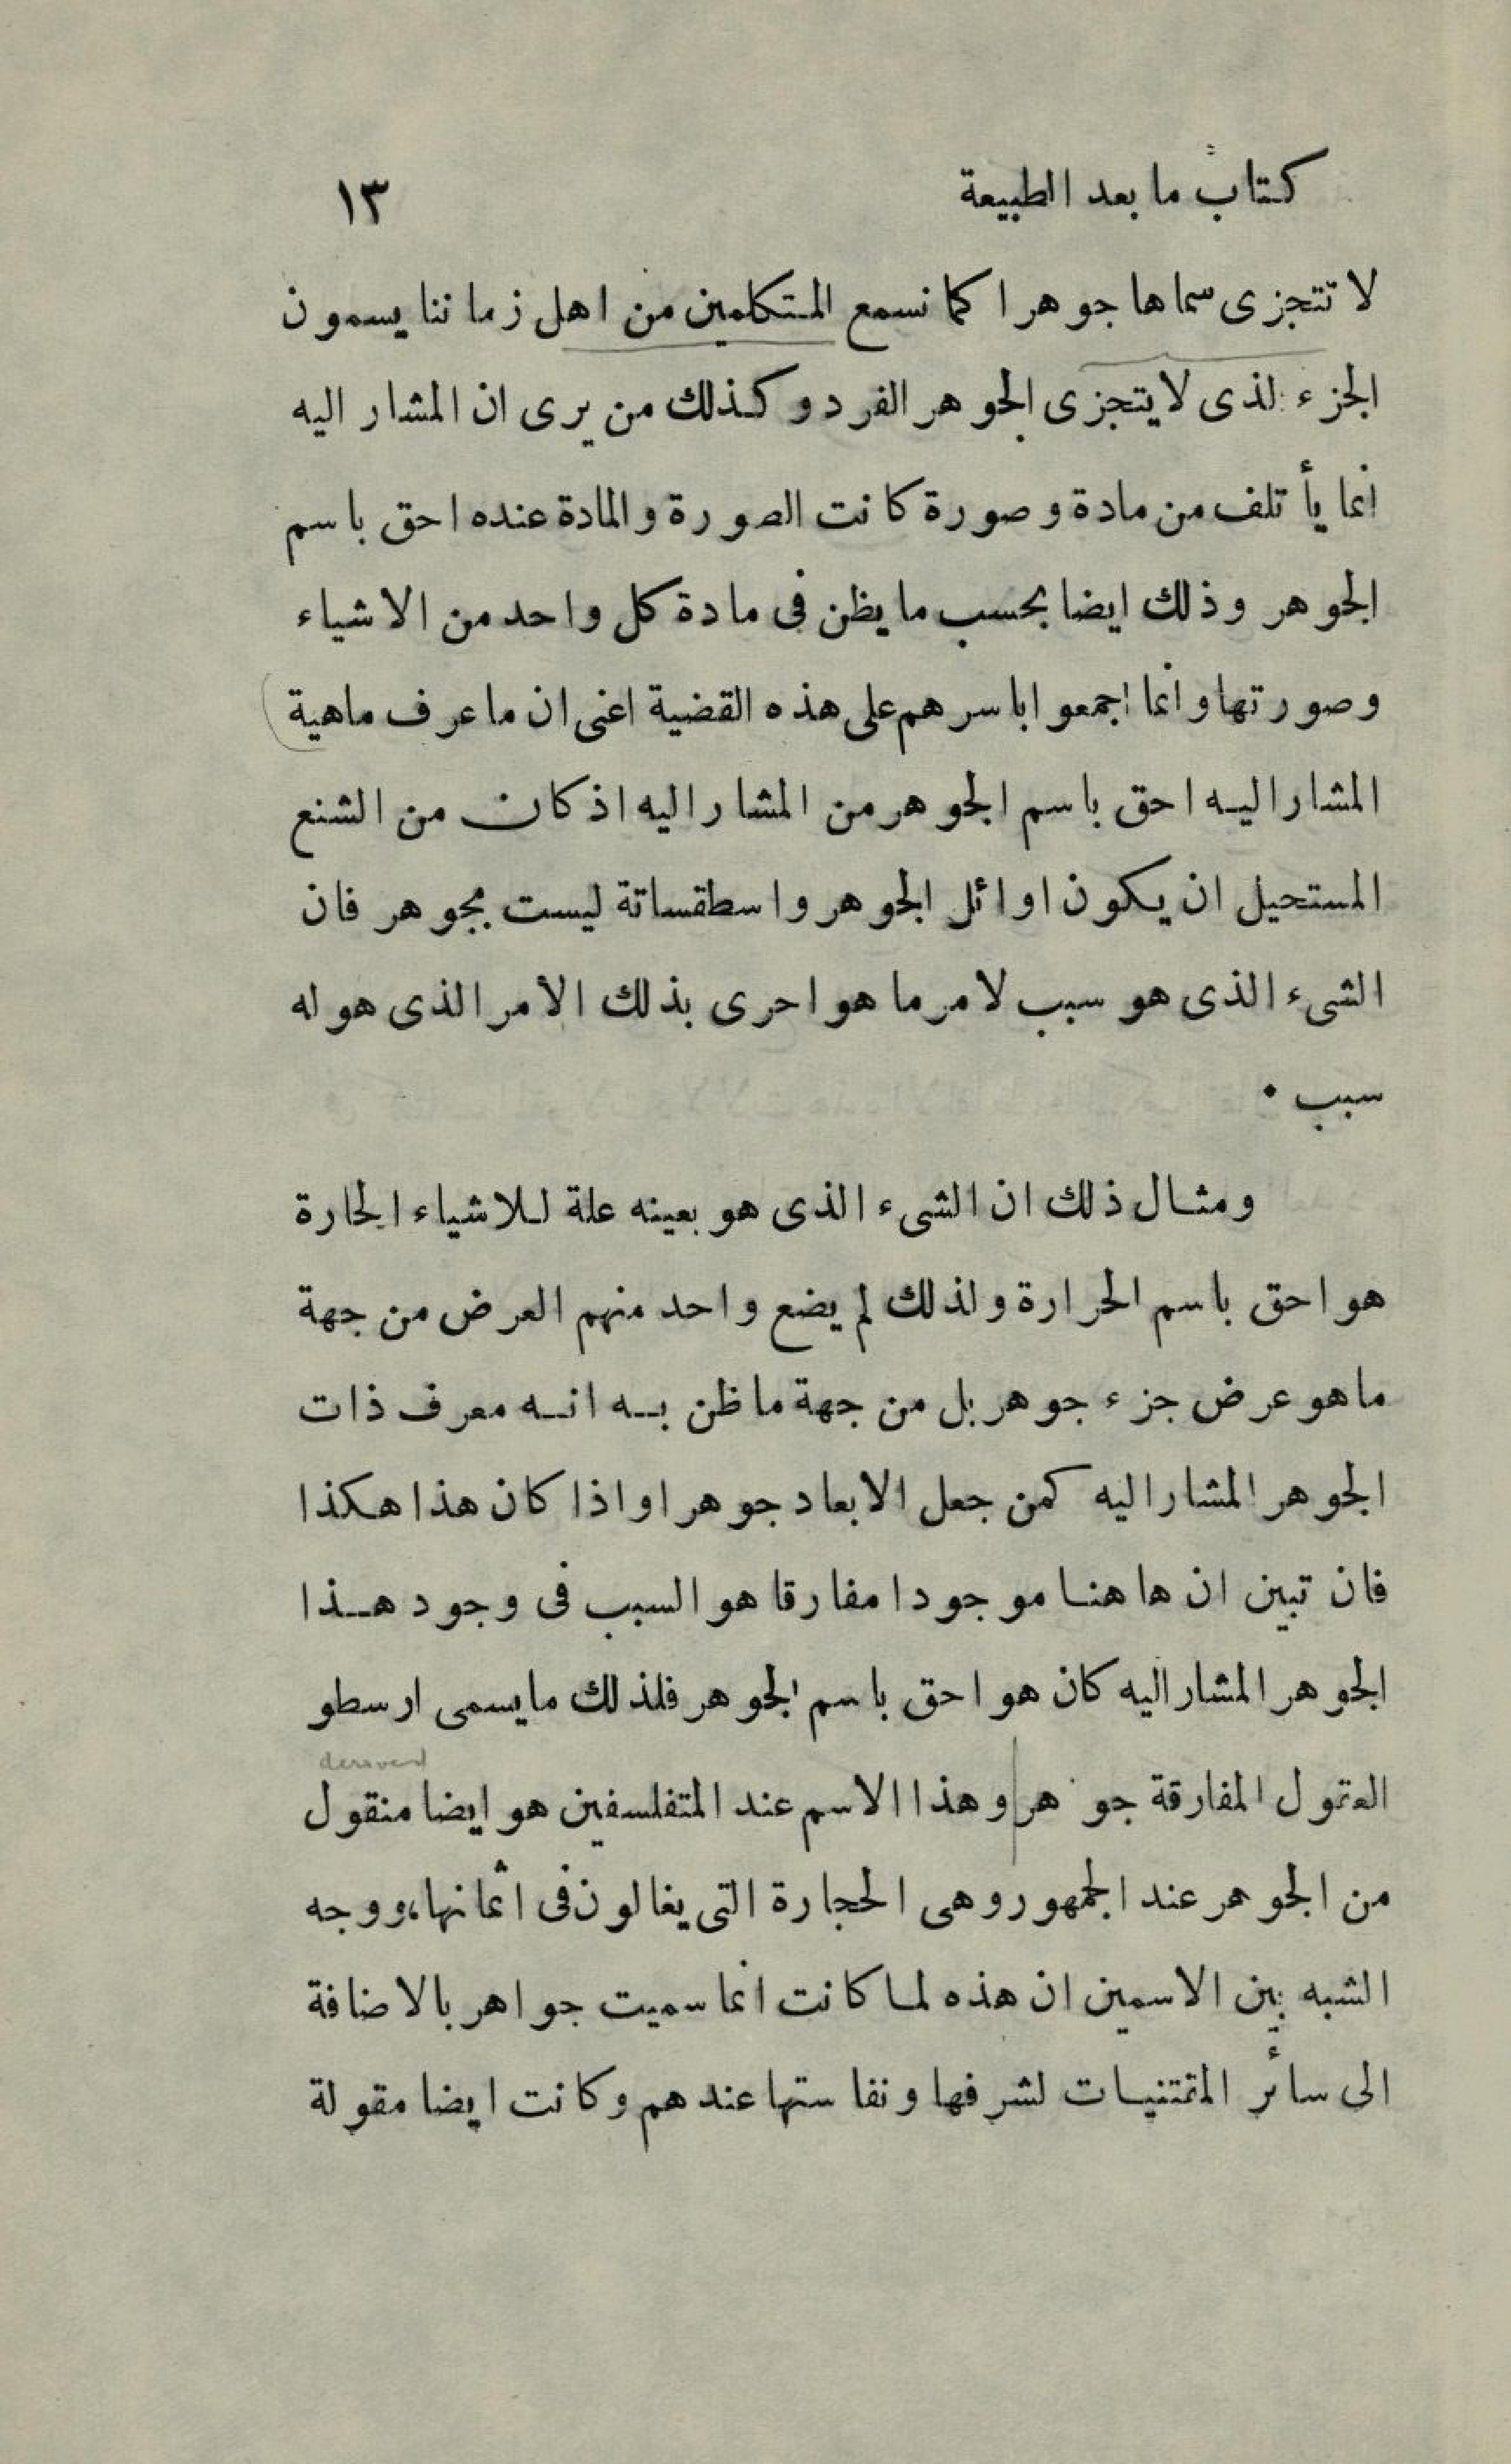 كتاب ما بعد الطبيعة ١٣
لا تتجزى سماها جوهرا كما نسمع المتكلمين من اهل زماننا يسمون
الجزء لذى لا يتجزى الجوهر الفرد وكذلك من يرى ان المشار اليه
انما يأتلف من مادة وصورة كانت الصورة والمادة عنده احق باسم
الجوهر وذلك ايضا بحسب ما يظن فى مادة كل واحد من الاشياء
وصورتها وانما اجمعوا باسرهم على هذه القضية اعنى ان ما عرف ماهية
المشار اليه احق باسم الجوهر من المشار اليه اذ كان من الشنع
المستحيل ان يكون اوائل الجوهر واسطقساتة ليست بجوهر فان
الشىء الذى هو سبب لامر ما هو احرى بذلك الامر الذى هو له
سبب ٠
ومثال ذلك ان الشىء الذى هو بعينه علة للاشياء الحارة
هو احق باسم الحرارة ولذلك لم يضع واحد منهم العرض من جهة
ما هو عرض جزء جوهر بل من جهة ما ظن به انه معرف ذات
الجوهر المشار اليه كمن جعل الابعاد جوهرا واذا كان هذا هكذا
فان تبين ان هاهنا موجودا مفارقا هو السبب فى وجود هذا
الجوهر المشار اليه كان هو احق باسم الجوهر فلذلك ما يسمى ارسطو
derived
العقول المفارقة جوهرا وهذا الاسم عند المتفلسفين هو ايضا منقول
من الجوهر عند الجمهور وهى الحجارة التى يغالون فى اثمانها، ووجه
الشبه بين الاسمين ان هذه لما كانت انما سميت جواهر بالاضافة
الى سائر المقتنيات لشرفها ونفاستها عندهم وكانت ايضا مقولة